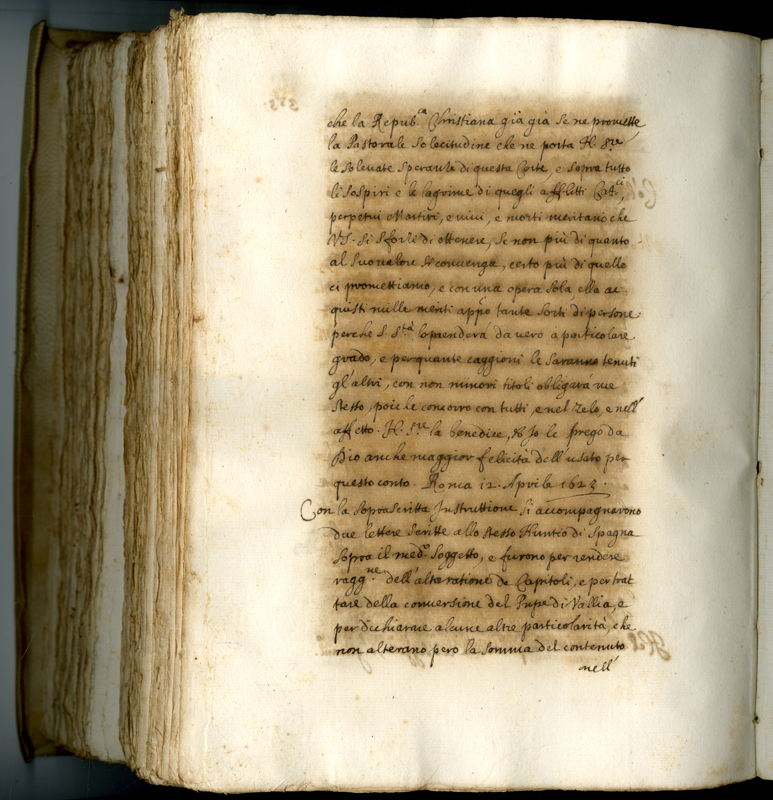 che la Repub.ca Christiana già già se ne promette
la Pastorale Solecitudine che ne porta N. Sre
le Solevate Speranze di questa Corte, e sopra tutto
li Sospiri e le lagrime di quegli afflitti Catt.ci
perpetui Martiri, e vivi, e morti meritano che
VS. si sforzi di ottenere, se non più di quanto
al Suo valore Se convenga, certo più di quello
ci promettiamo, e con una opera Sola ella ac
quisti mille meriti appo tante Sorti di persone
perche S. Stà loprenderà da vero à particolare
grado, e per quante caggioni le Saranno tenuti
gl'altri, con non minori titoli obligarà me
Stesso, poiche concorro con tutti, e nel Zelo, e nell'
affetto. N. Sre la benedice, et Io le prego da
Dio anche maggior felicità dell'usato per
questo conto. Roma 12. Aprile 1623.
Con la Soprascritta Instruttione Si accompagnarono
due lettere Scritte allo Stesso Nuntio di Spagna
Sopra il med.o Soggetto, e furono per rendere
ragg.ne dell'alteratione de Capitoli, e per trat
tare della conversione del Prnpe di Vallia, e
per dichiarare alcune altre particolarità, che
non alterano pero la Somma del contenuto
nell'